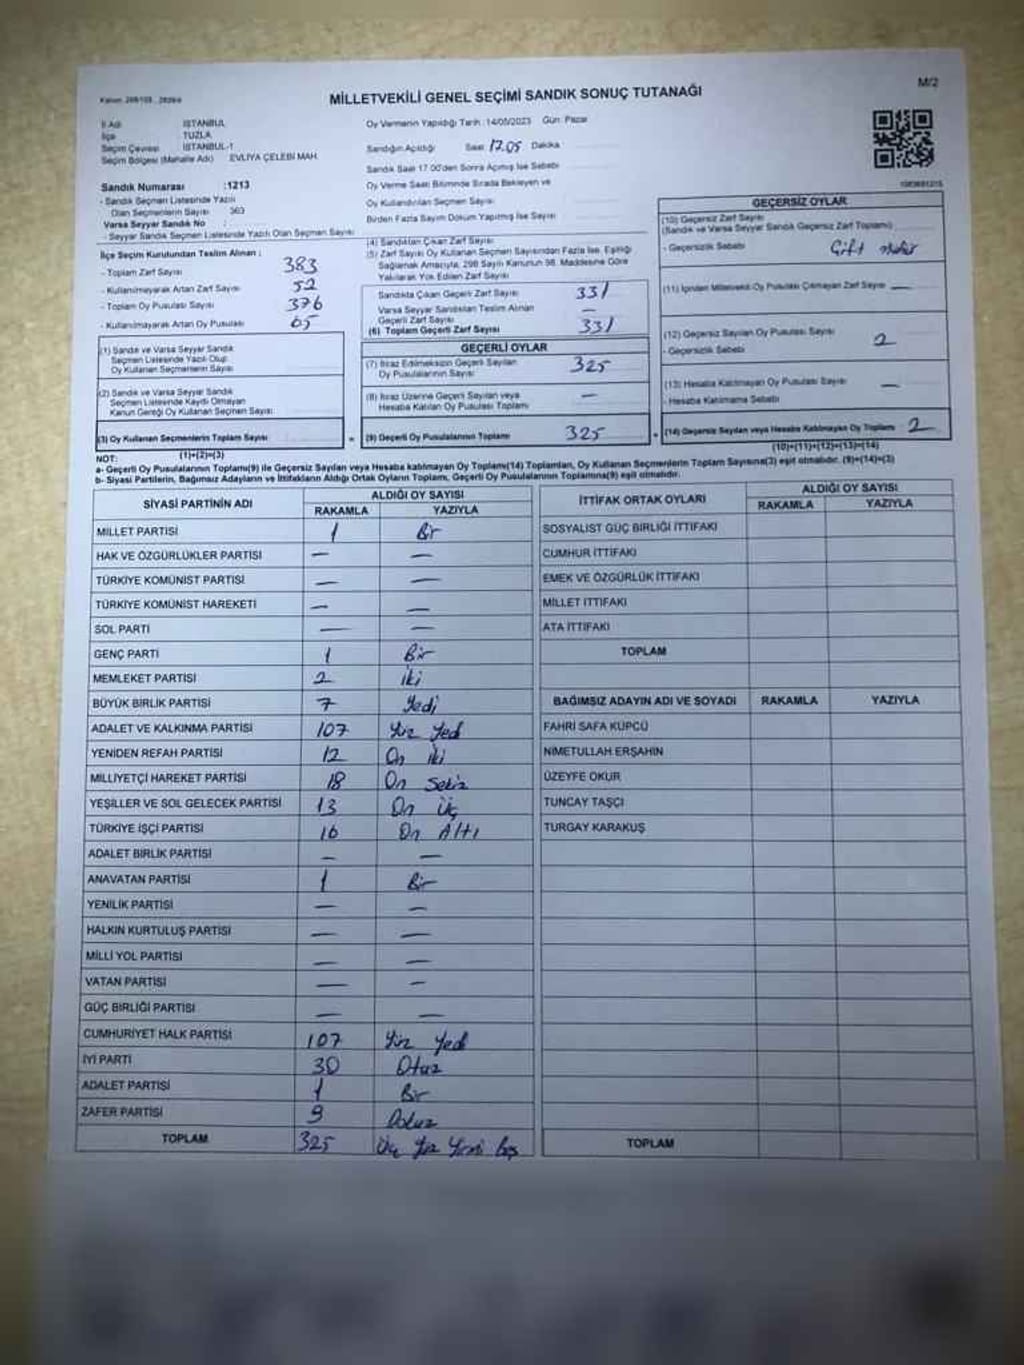 Kanun: 298/105 , 2839/4
M/2
MİLLETVEKİLİ GENEL SEÇİMİ SANDIK SONUÇ TUTANAĞI
İl Adı İSTANBUL
İlçe TUZLA
Seçim Çevresi İSTANBUL-1
Seçim Bölgesi (Mahalle Adı) EVLİYA ÇELEBİ MAH.
Sandık Numarası :1213
- Sandık Seçmen Listesinde Yazılı
Olan Seçmenlerin Sayısı 363
Varsa Seyyar Sandık No :
- Seyyar Sandık Seçmen Listesinde Yazılı Olan Seçmen Sayısı
Oy Vermenin Yapıldığı Tarih :14/05/2023 Gün: Pazar
Sandığın Açıldığı Saat 17.05 Dakika
Sandık Saat 17.00'den Sonra Açılmış İse Sebebi
Oy Verme Saati Bitiminde Sırada Bekleyen ve
Oy Kullandırılan Seçmen Sayısı
Birden Fazla Sayım Döküm Yapılmış İse Sayısı
İlçe Seçim Kurulundan Teslim Alınan :
- Toplam Zarf Sayısı 383
- Kullanılmayarak Artan Zarf Sayısı 52
- Toplam Oy Pusulası Sayısı 376
- Kullanılmayarak Artan Oy Pusulası 65
(1) Sandık ve Varsa Seyyar Sandık
Seçmen Listesinde Yazılı Olup
Oy Kullanan Seçmenlerin Sayısı
(2) Sandık ve Varsa Seyyar Sandık
Seçmen Listesinde Kaydı Olmayan
Kanun Gereği Oy Kullanan Seçmen Sayısı
(3) Oy Kullanan Seçmenlerin Toplam Sayısı
(1)+(2)=(3)
(4) Sandıktan Çıkan Zarf Sayısı
(5) Zarf Sayısı Oy Kullanan Seçmen Sayısından Fazla İse, Eşitliği
Sağlamak Amacıyla, 298 Sayılı Kanunun 98. Maddesine Göre
Yakılarak Yok Edilen Zarf Sayısı
Sandıkta Çıkan Geçerli Zarf Sayısı 331
Varsa Seyyar Sandıktan Teslim Alınan
Geçerli Zarf Sayısı —
(6) Toplam Geçerli Zarf Sayısı 331
GEÇERLİ OYLAR
(7) İtiraz Edilmeksizin Geçerli Sayılan
Oy Pusulalarının Sayısı 325
(8) İtiraz Üzerine Geçerli Sayılan veya
Hesaba Katılan Oy Pusulaları Toplamı —
(9) Geçerli Oy Pusulalarının Toplamı 325
GEÇERSİZ OYLAR
(10) Geçersiz Zarf Sayısı
(Sandık ve Varsa Seyyar Sandık Geçersiz Zarf Toplamı)
- Geçersizlik Sebebi Çift Mühür
(11) İçinden Milletvekili Oy Pusulası Çıkmayan Zarf Sayısı —
(12) Geçersiz Sayılan Oy Pusulası Sayısı 2
- Geçersizlik Sebebi
(13) Hesaba Katılmayan Oy Pusulası Sayısı —
- Hesaba Katılmama Sebebi
(14) Geçersiz Sayılan veya Hesaba Katılmayan Oy Toplamı 2
(10)+(11)+(12)+(13)=(14)
NOT:
a- Geçerli Oy Pusulalarının Toplamı(9) ile Geçersiz Sayılan veya Hesaba katılmayan Oy Toplamı(14) Toplamları, Oy Kullanan Seçmenlerin Toplam Sayısına(3) eşit olmalıdır. (9)+(14)=(3)
b- Siyasi Partilerin, Bağımsız Adayların ve İttifakların Aldığı Ortak Oyların Toplamı, Geçerli Oy Pusulalarının Toplamına(9) eşit olmalıdır.
SİYASİ PARTİNİN ADI ALDIĞI OY SAYISI
RAKAMLA YAZIYLA
MİLLET PARTİSİ 1 Bir
HAK VE ÖZGÜRLÜKLER PARTİSİ — —
TÜRKİYE KOMÜNİST PARTİSİ — —
TÜRKİYE KOMÜNİST HAREKETİ — —
SOL PARTİ — —
GENÇ PARTİ 1 Bir
MEMLEKET PARTİSİ 2 iki
BÜYÜK BİRLİK PARTİSİ 7 Yedi
ADALET VE KALKINMA PARTİSİ 107 Yüz Yedi
YENİDEN REFAH PARTİSİ 12 On iki
MİLLİYETÇİ HAREKET PARTİSİ 18 On Sekiz
YEŞİLLER VE SOL GELECEK PARTİSİ 13 On Üç
TÜRKİYE İŞÇİ PARTİSİ 16 On Altı
ADALET BİRLİK PARTİSİ — —
ANAVATAN PARTİSİ 1 Bir
YENİLİK PARTİSİ — —
HALKIN KURTULUŞ PARTİSİ — —
MİLLİ YOL PARTİSİ — —
VATAN PARTİSİ — —
GÜÇ BİRLİĞİ PARTİSİ — —
CUMHURİYET HALK PARTİSİ 107 Yüz Yedi
İYİ PARTİ 30 Otuz
ADALET PARTİSİ 1 Bir
ZAFER PARTİSİ 9 Dokuz
TOPLAM 325 Üç Yüz Yirmi beş
İTTİFAK ORTAK OYLARI ALDIĞI OY SAYISI
RAKAMLA YAZIYLA
SOSYALİST GÜÇ BİRLİĞİ İTTİFAKI
CUMHUR İTTİFAKI
EMEK VE ÖZGÜRLÜK İTTİFAKI
MİLLET İTTİFAKI
ATA İTTİFAKI
TOPLAM
BAĞIMSIZ ADAYIN ADI VE SOYADI RAKAMLA YAZIYLA
FAHRİ SAFA KÜPCÜ
NİMETULLAH ERŞAHİN
ÜZEYFE OKUR
TUNCAY TAŞÇI
TURGAY KARAKUŞ
TOPLAM